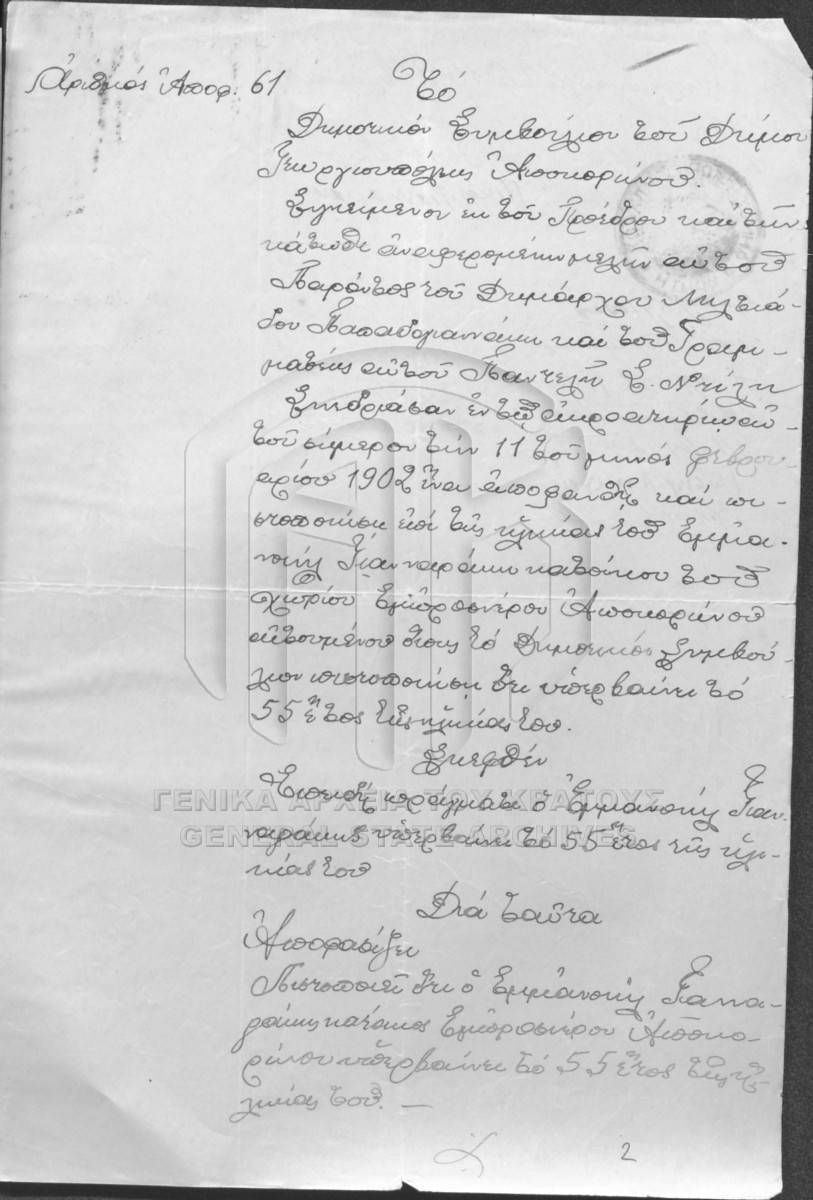 Ἀριθμός Ἀποφ. 61
Τό
Δημοτικόν Συμβούλιον τοῦ Δήμου
Γεωργιουπόλεως Ἀποκορώνου.
Συγκείμενον ἐκ τοῦ Προέδρου καί τῶν
κάτωθι ἀναφερομένων μελῶν αὐτοῦ
Παρόντος τοῦ Δημάρχου Μιλτιά-
δου Παπαδογιαννάκη καί τοῦ Γραμ-
ματέως αὐτοῦ Παντελῆ Σ.
Συνεδριάσαν ἐν τῷ ἀκροατηρίῳ αὐ-
τοῦ σήμερον τήν 11 τοῦ μηνός Φεβρου-
αρίου 1902 ἵνα ἀποφανθῇ καί πι-
στοποιήσῃ ἐπί τῆς ἡλικίας τοῦ Ἐμμα-
νουήλ Γιανναράκη κατοίκου τοῦ
χωρίου Ἐμπρόσνερου Ἀποκορώνου
αἰτουμένου ὅπως τό Δημοτικόν Συμβού-
λιον πιστοποιήσῃ ὅτι ὑπερβαίνει τό
55 ἔτος τῆς ἡλικίας του.
Σκεφθέν
Ἐπειδή πράγματι ὁ Ἐμμανουήλ Γιαν-
ναράκης ὑπερβαίνει τό 55 ἔτος τῆς ἡλι-
κίας του
Διά ταῦτα
Ἀποφασίζει
Πιστοποιεῖ ὅτι ὁ Ἐμμανουήλ Γιανα-
ράκης κάτοικος Ἐμπρόσνερου Ἀποκο-
ρώνου ὑπερβαίνει τό 55 ἔτος τῆς ἡ-
λικίας του. —
2
ΓΕΝΙΚΑ ΑΡΧΕΙΑ ΤΟΥ ΚΡΑΤΟΥΣ
GENERAL STATE ARCHIVES